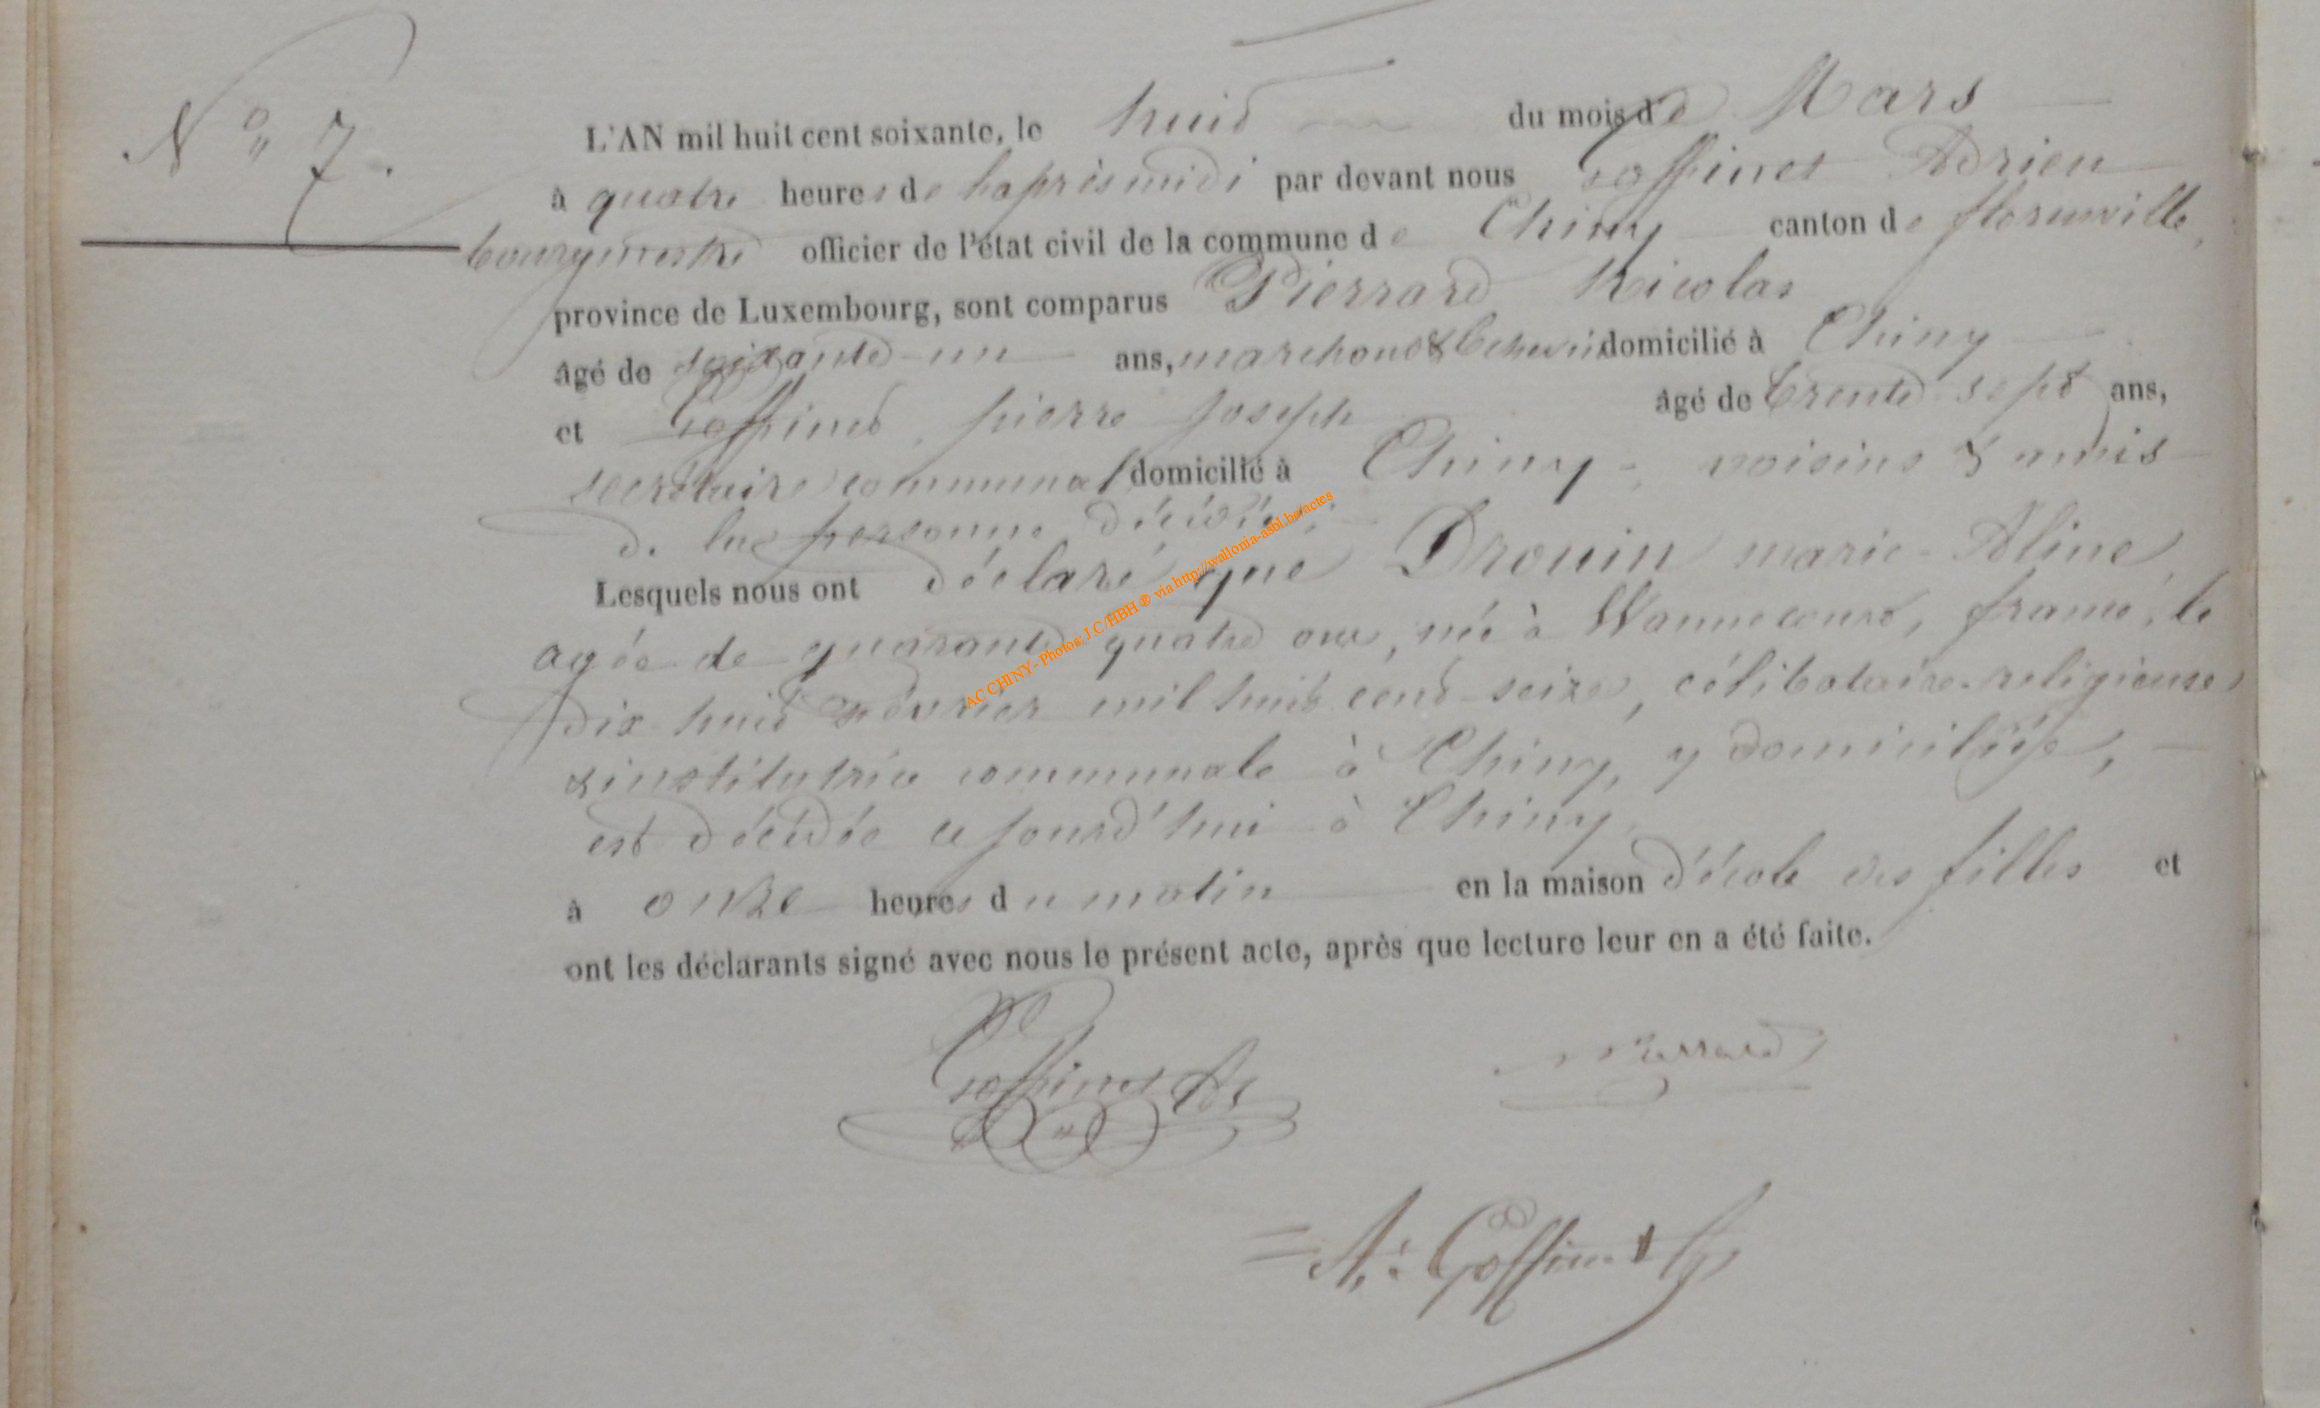 N° 7.
L'AN mil huit cent soixante, le huit du mois de Mars
à quatre heures de l'après midi par devant nous Goffinet Adrien
bourgmestre officier de l'état civil de la commune de Chiny canton de florenville,
province de Luxembourg, sont comparus Pierrard Nicolas
âgé de soixante-un ans, marchand & domicilié à Chiny
et Goffinet, pierre Joseph âgé de trente-sept ans,
secrétaire communal domicilié à Chiny, voisins & amis
de la personne décédée;
Lesquels nous ont déclaré que Drouin marie-Aline,
agée de quarante quatre ans, née à france, le
dix huit février mil huit cent-seize, célibataire-religieuse
& institutrice communale à Chiny, y domiciliée,
est décédée ce jourd'hui à Chiny,
à onze heures du matin en la maison d'école des filles et
ont les déclarants signé avec nous le présent acte, après que lecture leur en a été faite.
Goffinet
Pierrard
A. Goffinet
AC CHINY- Photos: J.C/HBH ® via http://wallonia-asbl.be/actes